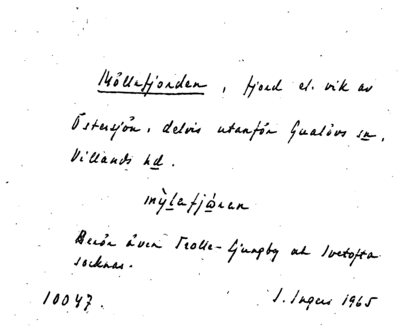 Möllefjorden, fjord el. vik av
Östersjön, delvis utanför Gualövs sn,
Villands hd.
mỳlafjǫran
Berör även Trolle-Ljungby och Ivetofta
socknar.
10047. I. Ingers 1965